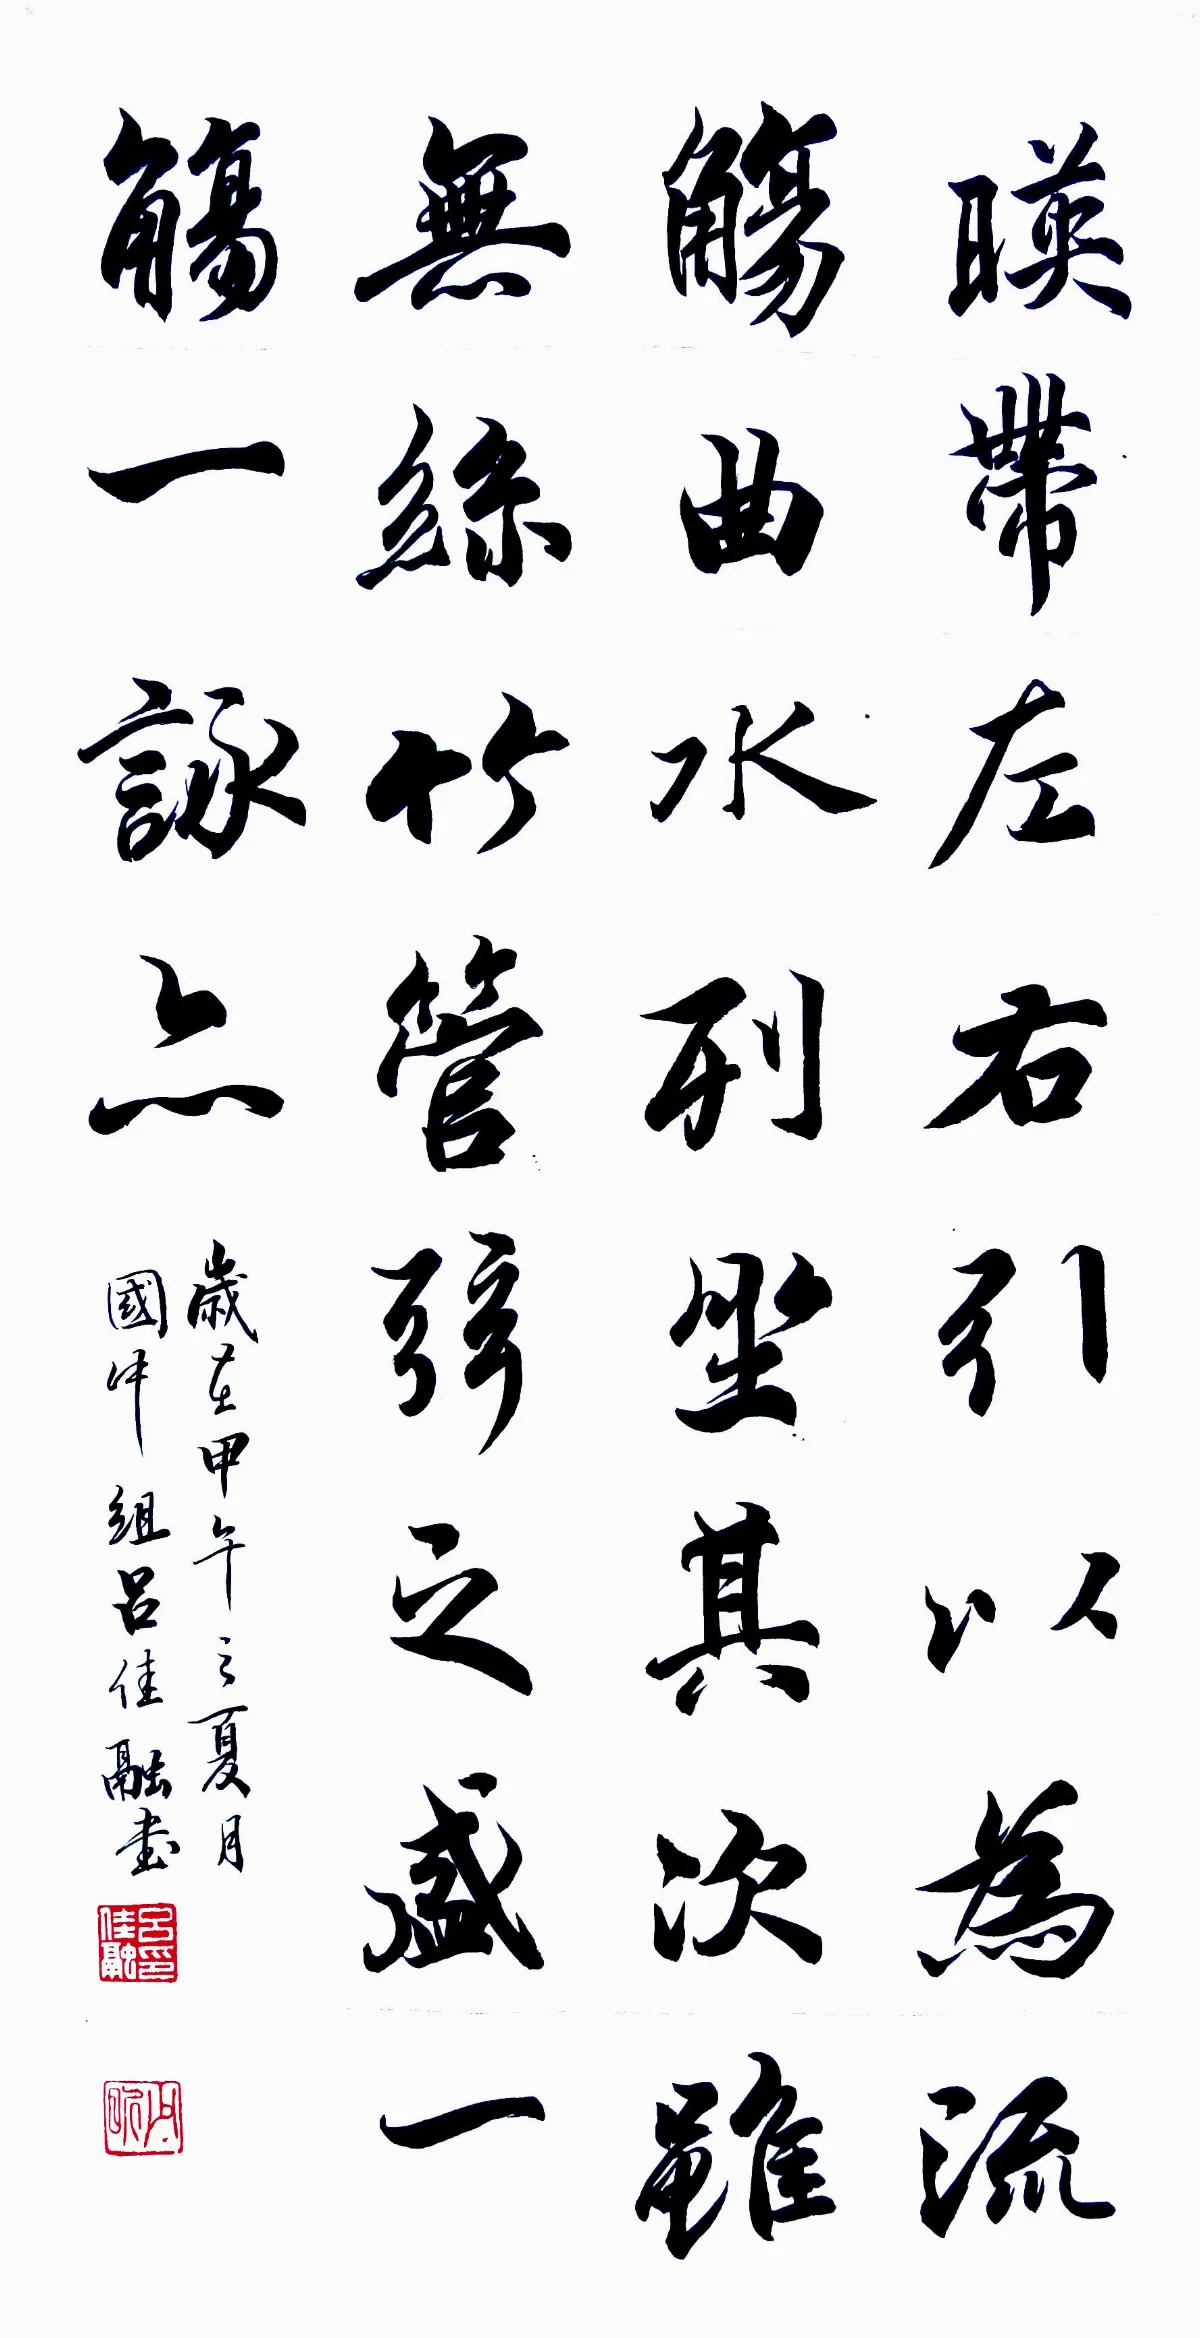 暎帶左右引以為流
觴曲水列坐其次雖
無絲竹管弦之盛一
觴一詠亦
歲在甲午之夏月
國中組呂佳融書
呂佳融印